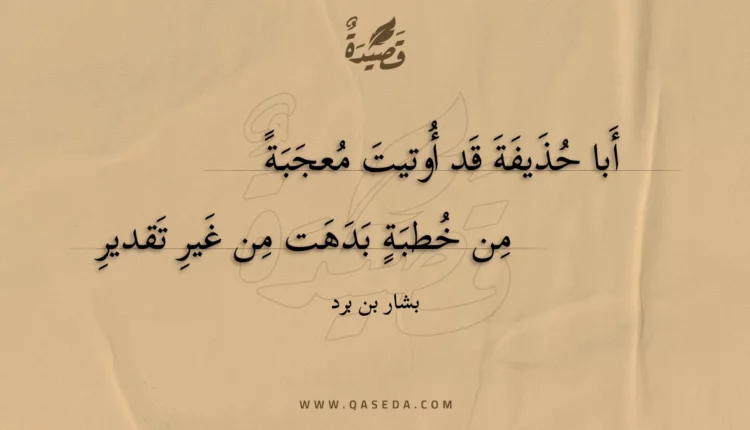 قَصِيْدَةٌ
أَبا حُذَيفَةَ قَد أُوتيتَ مُعجَبَةً
مِن خُطبَةٍ بَدَهَت مِن غَيرِ تَقديرِ
بشار بن برد
WWW.QASEDA.COM